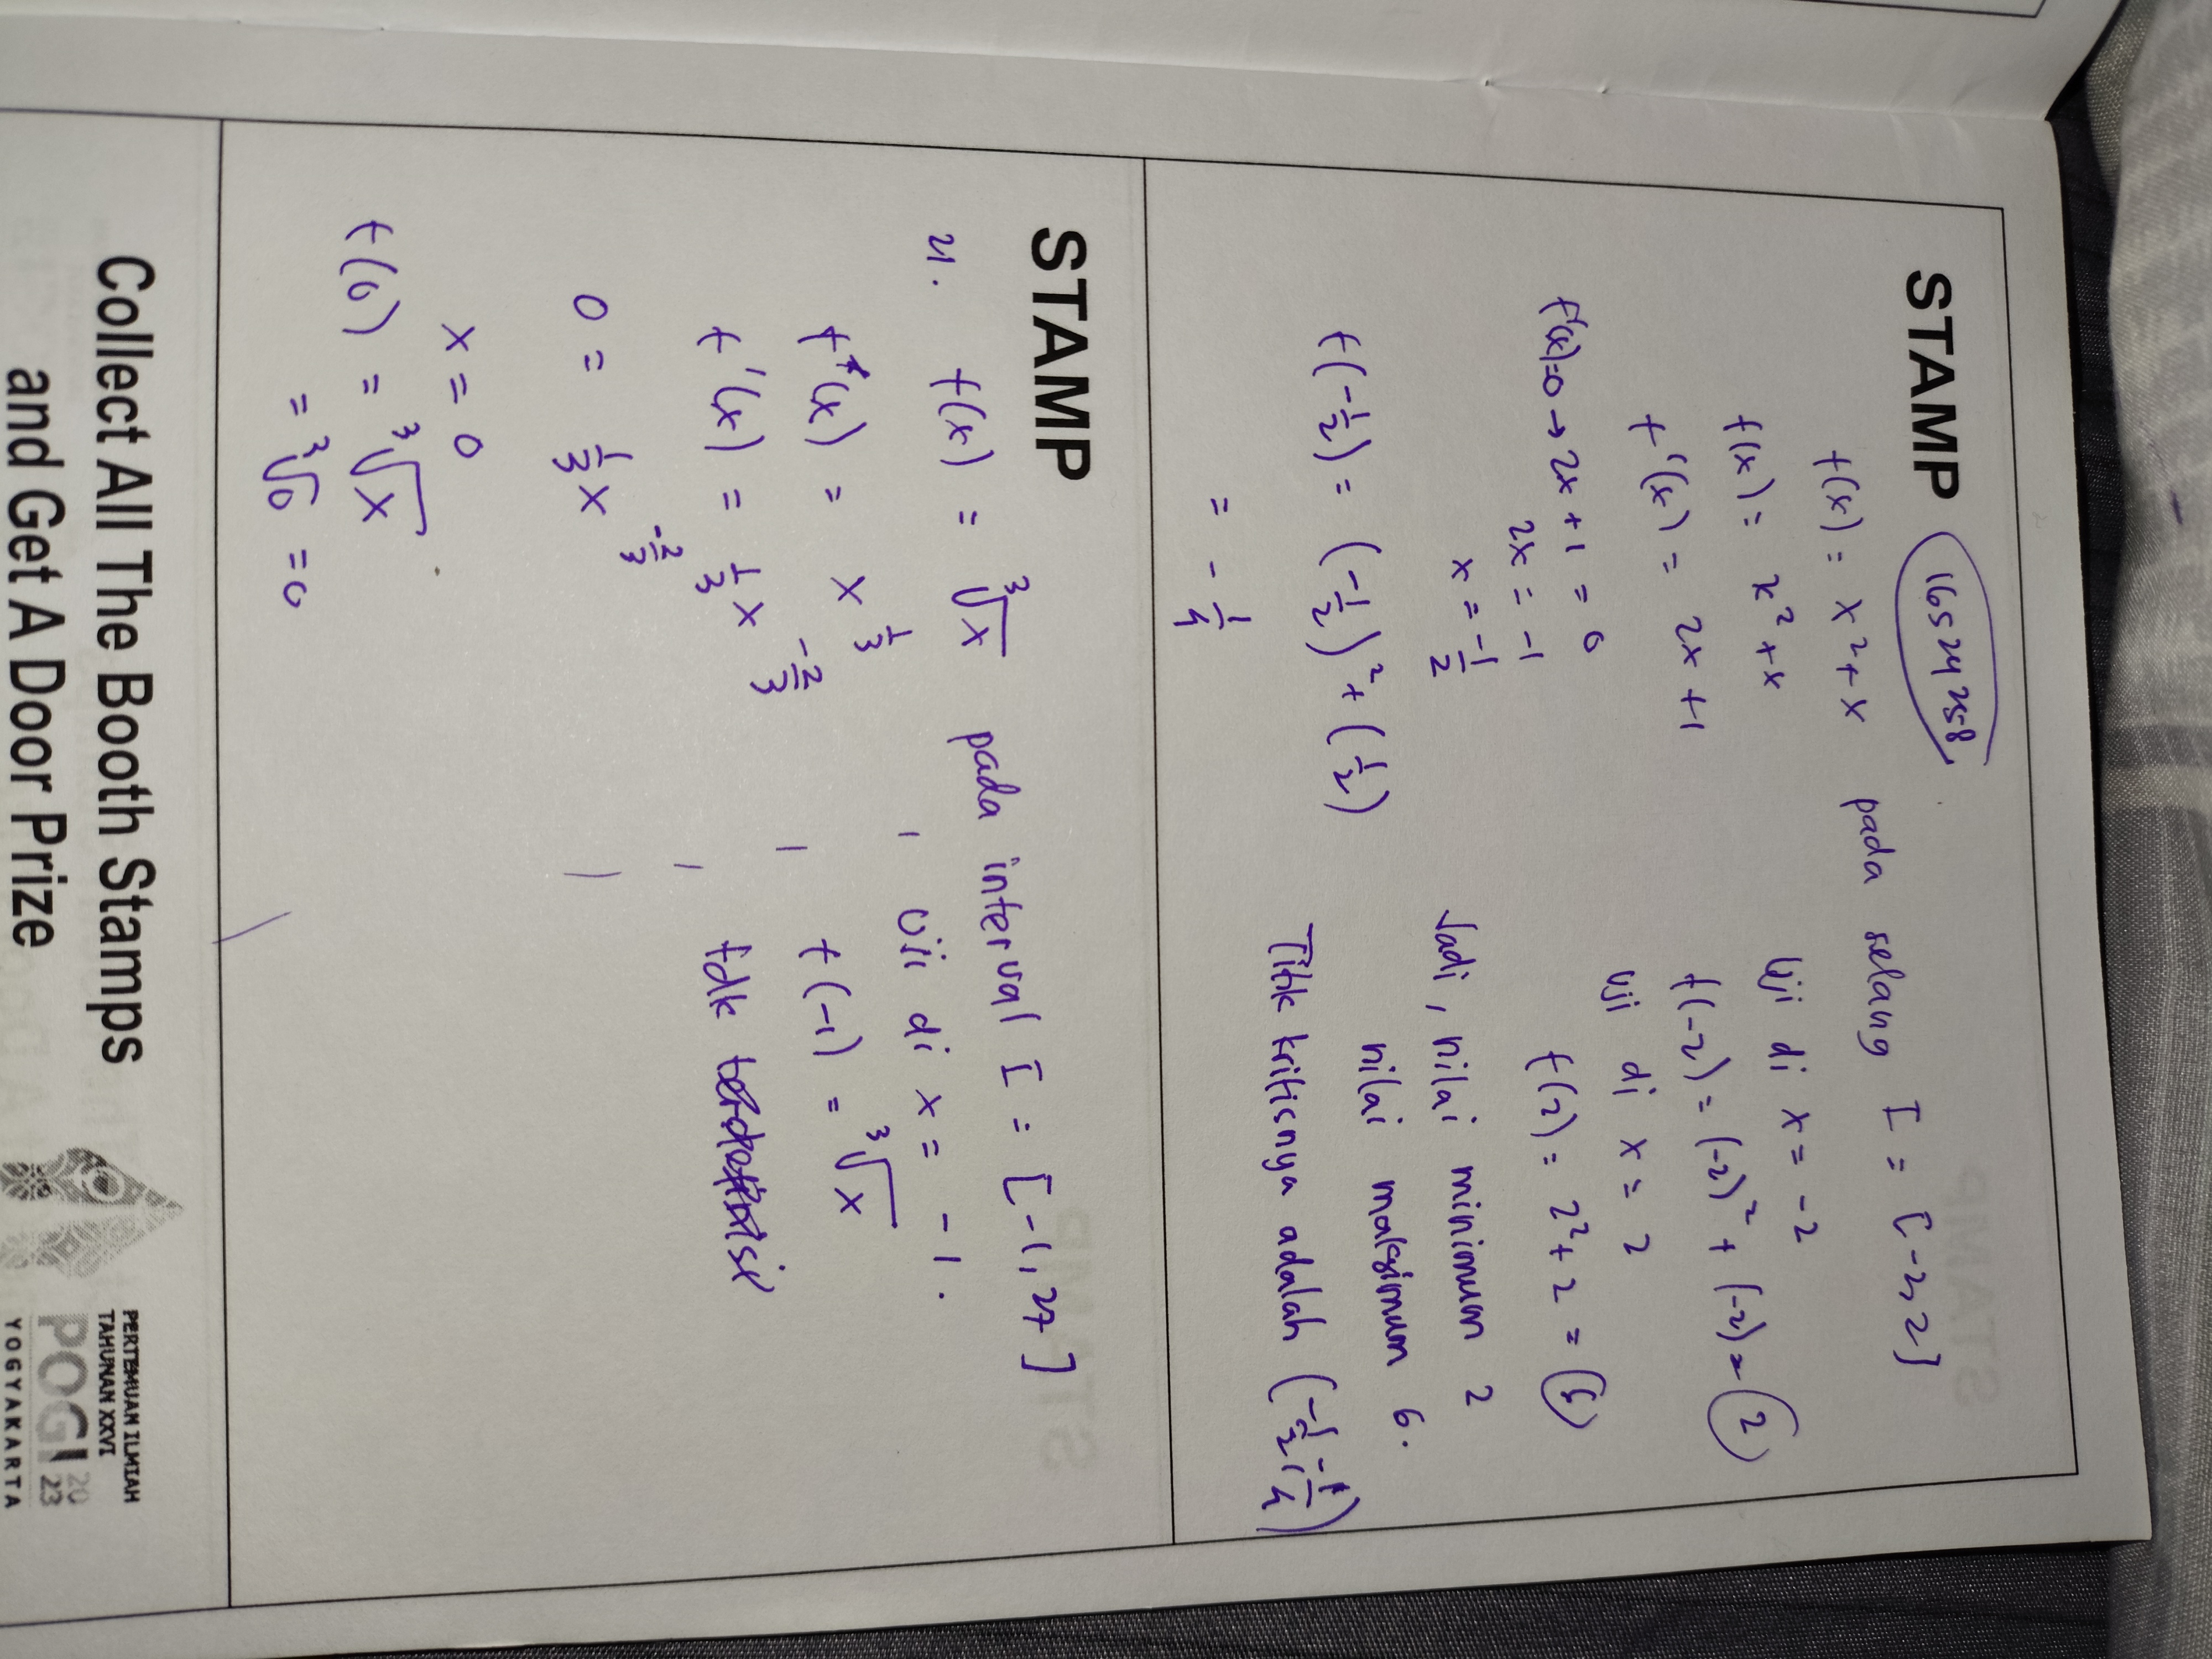 STAMP
16524258
f(x) = x² + x pada selang I = [-2, 2]
f(x) = x² + x
f'(x) = 2x + 1
f'(x)=0 → 2x + 1 = 0
2x = -1
x = -1/2
f(-1/2) = (-1/2)² + (1/2)
= - 1/4
Uji di x = -2
f(-2) = (-2)² + (-2) = 2
Uji di x = 2
f(2) = 2² + 2 = 6
Jadi, nilai minimum 2
nilai maksimum 6.
Titik kritisnya adalah (-1/2, -1/4)
STAMP
21. f(x) = ³√x pada interval I = [-1, 27]
f(x) = x^(1/3)
f'(x) = 1/3 x^(-2/3)
0 = 1/3 x^(-2/3)
x = 0
f(0) = ³√x
= ³√0 = 0
Uji di x = -1.
f(-1) = ³√x
tdk terdefinisi
Collect All The Booth Stamps
and Get A Door Prize
PERTEMUAN ILMIAH
TAHUNAN XXVI
POGI 20
23
YOGYAKARTA